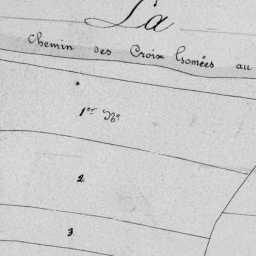 La
Chemin des Croix Gomées au
1er No
2
3